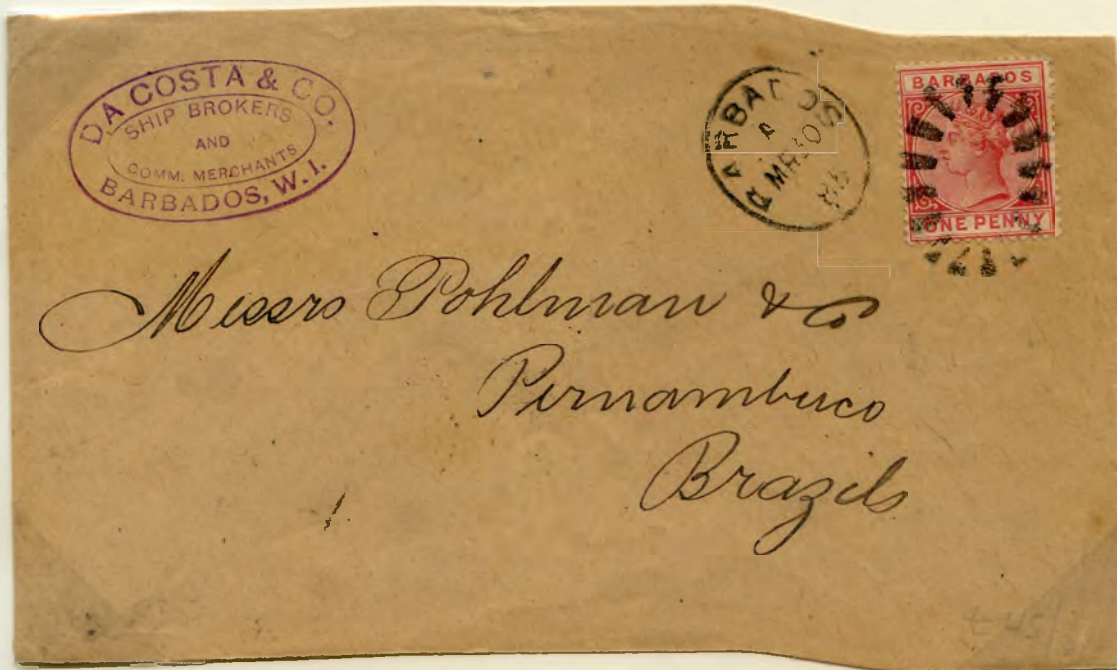 DA COSTA & CO.
SHIP BROKERS
AND
COMM. MERCHANTS
BARBADOS, W.I.
BARBADOS
A
MR 30
85
BARBADOS
ONE PENNY
Messrs Pohlman & Co
Pernambuco
Brazils